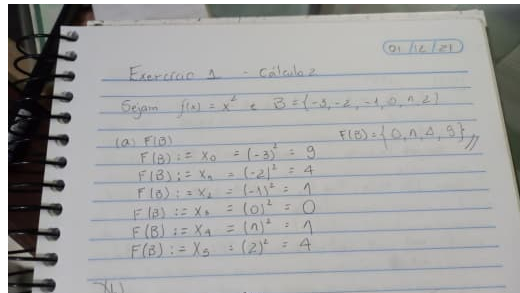 01/12/21
Exercício 1 - Cálculo 2
Sejam f(x) = x² e B = {-3, -2, -1, 0, 1, 2}
(a) F(B) F(B) = {0, 1, 4, 9}
F(B) := x₀ = (-3)² = 9
F(B) := x₁ = (-2)² = 4
F(B) := x₂ = (-1)² = 1
F(B) := x₃ = (0)² = 0
F(B) := x₄ = (1)² = 1
F(B) := x₅ = (2)² = 4